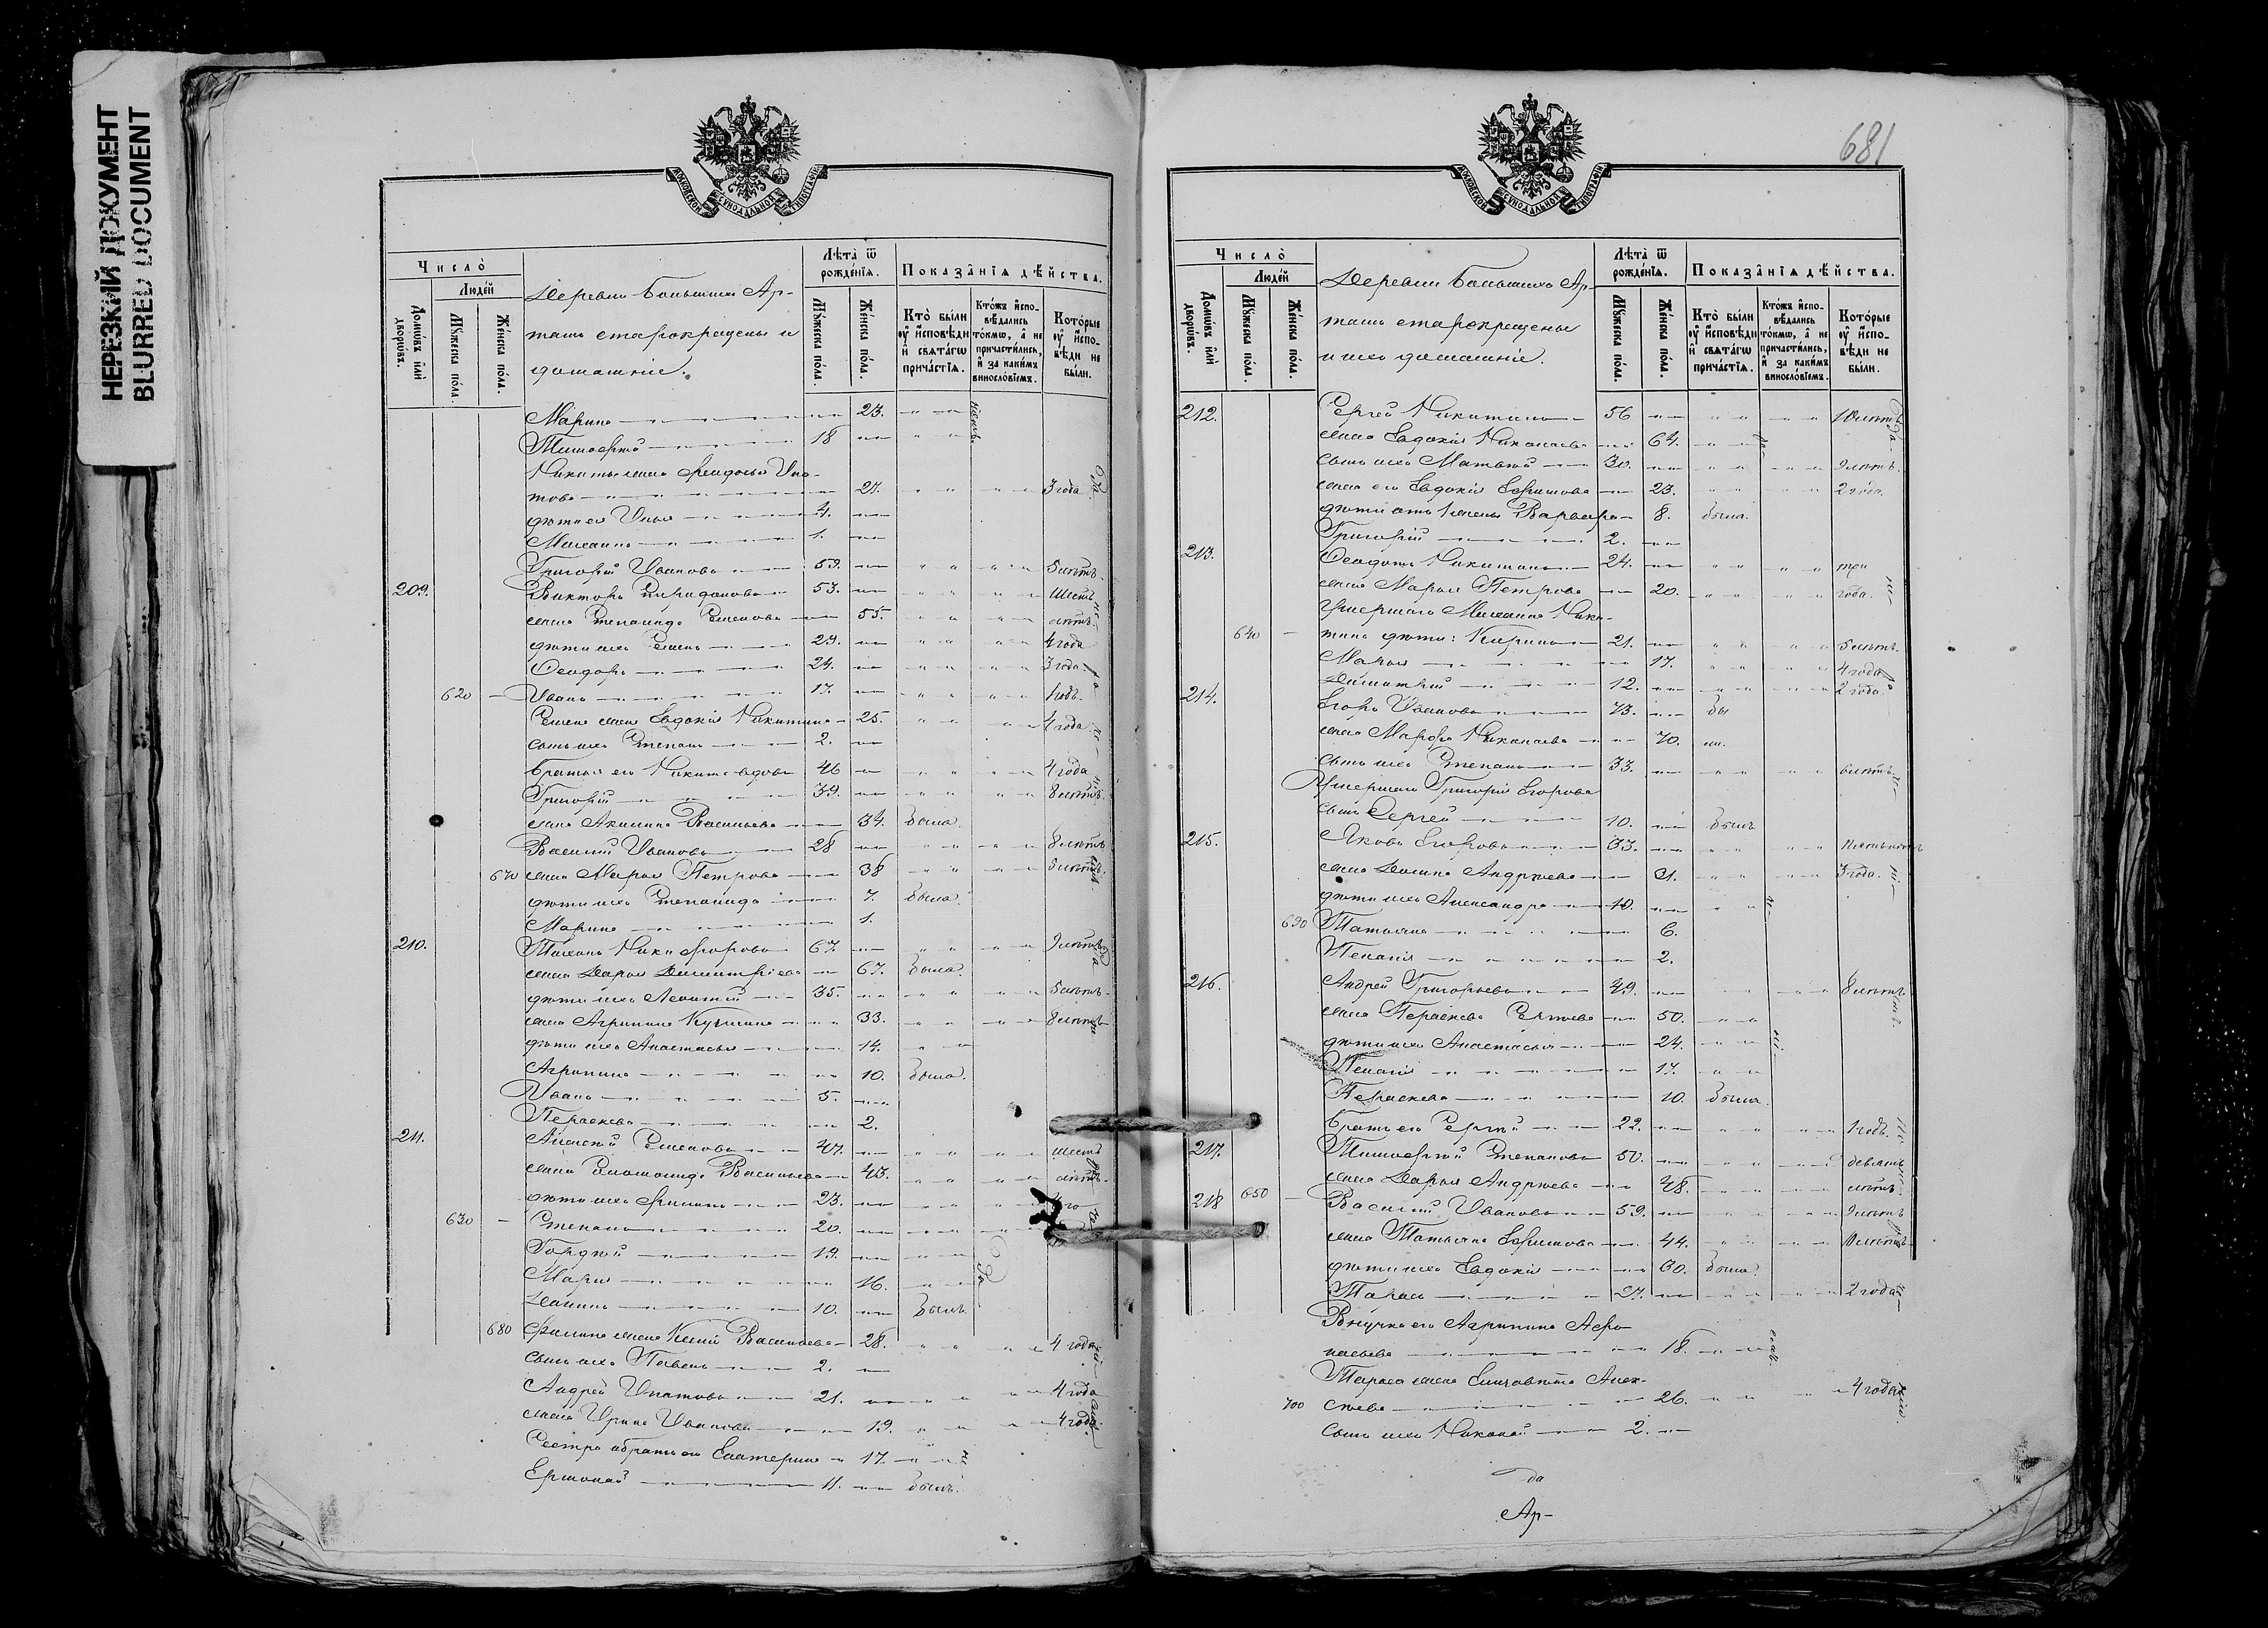 НЕРЕЗКИЙ ДОКУМЕНТ
BLURRED DOCUMENT
МОСКОВСКОЙ СѴНОДАЛЬНОЙ ТИПОГРАФІИ
Число̀
Людей
Домѡвъ или дворѡвъ.
Мꙋжеска пола.
Женска пола.
Деревни Большихъ Ар-
ташъ старокрещены и
домашніе.
Лѣта̀ ѿ рожденїѧ.
Мꙋжеска пола.
Женска пола.
Показанїѧ дѣйства.
Кто̀ были ᲂу҆ исповѣди и свѧтагѡ причастїѧ.
Ктожъ исповѣдались токмѡ, а не причастились, и за какимъ винословїемъ.
Которые ᲂу҆ исповѣди не были.
Марина 23.
Тимофей 18
Никиты жена Феодосья Ипа-
това 27. 3 года
дѣти ея Илья 4.
Михаилъ 1.
Григорій Ивановъ 59. 5 лѣтъ.
209. Викторъ Спиридоновъ 53. шесть
жена Степанида Семенова 55. лѣтъ.
дѣти ихъ Семенъ 29. 4 года
Феодоръ 24. 3 года
620 Иванъ 17. 1 годъ.
Семена жена Евдокія Никитина 25. 4 года
сынъ ихъ Степанъ 2.
братья его Никита вдовъ 46 4 года
Григорій 39. 8 лѣтъ.
жена Акилина Васильева 34. была.
Василій Ивановъ 28 8 лѣтъ
670 жена Марья Петрова 38 5 лѣтъ.
дѣти ихъ Степанида 7. была.
Марина 1.
210. Тихонъ Никифоровъ 67. 9 лѣтъ
жена Дарья Димитріева 67. была.
дѣти ихъ Леонтій 35. 5 лѣтъ
жена Агрипина Кузмина 33. 8 лѣтъ
дѣти ихъ Анастасья 14.
Агрипина 10. была.
Иванъ 5.
Параскева 2.
211. Алексѣй Семеновъ 47. шесть
жена Соломонида Васильева 43. лѣтъ.
дѣти ихъ Филипъ 23.
630 Степанъ 20.
Гордѣй 19.
Марія 16.
Данилъ 10. былъ
680 Филипа жена Ксенія Васильева 28. 4 года
сынъ ихъ Павелъ 2.
Андрей Ипатовъ 21. 4 года
жена Ирина Иванова 19. 4 года.
Сестра и братъ его Екатерина 17.
Ермолай 11. былъ.
681
МОСКОВСКОЙ СѴНОДАЛЬНОЙ ТИПОГРАФІИ
Число̀
Людей
Домѡвъ или дворѡвъ.
Мꙋжеска пола.
Женска пола.
Деревни Большихъ Ар-
ташъ старокрещены
и ихъ домашніе.
Лѣта̀ ѿ рожденїѧ.
Мꙋжеска пола.
Женска пола.
Показанїѧ дѣйства.
Кто̀ были ᲂу҆ исповѣди и свѧтагѡ причастїѧ.
Ктожъ исповѣдались токмѡ, а не причастились, и за какимъ винословїемъ.
Которые ᲂу҆ исповѣди не были.
212. Сергей Никитинъ 56 10 лѣтъ
жена Евдокія Николаева 64.
сынъ ихъ Матвѣй 30. 9 лѣтъ.
жена его Евдокія Ефимова 23. 2 года.
дѣти отъ 1 жены Варвара 8. была.
Григорій 2.
213. Феодотъ Никитинъ 24. три
жена Марья Петрова 20. года.
Умершаго Михаила Ники-
640 тина дѣти: Кирилъ 21. 5 лѣтъ.
Марья 17. 4 года
Димитрій 12. 2 года.
214. Егоръ Ивановъ 73. бы
жена Марфа Николаева 70. ли.
сынъ ихъ Степанъ 33. 6 лѣтъ
Умершаго Григорія Егорова
сынъ Сергей 10. былъ
215. Яковъ Егоровъ 33.
жена Долина Андреева 31. 3 года.
дѣти ихъ Александръ 10.
690 Татьяна 6.
Пелагія 2.
216. Андрей Григорьевъ 49. 8 лѣтъ
жена Параскева Сергѣева 50.
дѣти ихъ Анастасья 24.
Пелагія 17.
Параскева 10. была.
братъ его Сергѣй 22. 1 годъ.
217. Тимофей Степановъ 50. девять
жена Дарья Андреева 48. лѣтъ
218 650 Василій Ивановъ 59. 9 лѣтъ
жена Татьяна Ефимова 44.
дѣти ихъ Евдокія 30. была.
Тарасъ 27. 2 года
Внучка его Агрипина Афо-
насьева 18.
Тараса жена Елизавета Алек-
700 сѣева 26. 4 года
сынъ ихъ Николай 2.
да
Ар-